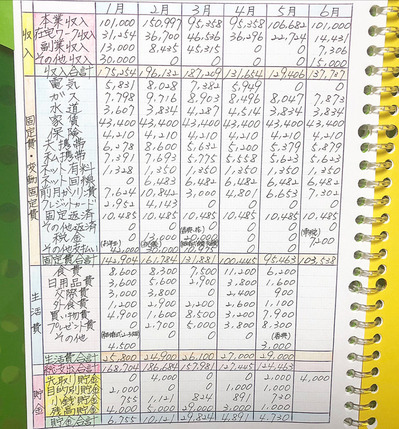 1月 2月 3月 4月 5月 6月
収入
本業収入 101,000 150,997 95,358 95,358 106,682 101,000
在宅ワーク収入 31,254 36,700 46,536 36,296 22,724 14,431
副業収入 13,000 8,435 45,315 0 0 7,306
その他収入 30,000 0 0 0 0 15,000
収入合計 175,254 196,132 187,209 131,654 129,406 137,737
固定費・変動固定費
電気 5,831 8,028 7,382 5,949 0 0
ガス 7,798 9,716 8,903 8,496 8,047 7,873
水道 3,607 3,834 4,287 4,514 3,834 3,834
家賃 43,400 43,400 43,400 43,400 43,400 43,400
保険 4,210 4,210 4,210 4,210 4,210 4,210
夫携帯 6,278 8,600 5,632 5,200 5,379 5,879
私携帯 7,391 7,693 5,775 5,558 5,623 5,623
ネット有料 1,328 1,350 1,350 1,350 1,350 1,350
ネット回線 0 6,483 6,482 6,482 6,482 6,482
前月カバー費 7,624 10,842 3,000 4,801 6,653 7,302
クレジットカード 2,952 4,143 0 0 0 0
固定返済 10,485 10,485 10,485 10,485 10,485 10,485
その他返済 0 0 0 0 0 0
税金 0 13,000 20,000 0 0 7,200
その他支払い 42,000 30,000
固定費合計 142,904 161,784 131,881 100,445 95,463 103,538
生活費
食費 8,600 8,300 7,500 11,200 6,200
日用品費 3,600 5,600 2,900 3,800 1,600
交際費 3,000 3,800 0 2,400 900
外食費 1,200 2,900 2,200 2,600 1,100
買い物費 4,900 1,600 8,500 3,200 7,900
プレゼント費 0 2,700 5,000 3,800 8,300
その他 4,500 3,000
生活費合計 25,800 24,900 26,100 27,000 29,000
総支出合計 168,704 186,684 157,981 127,445 124,463
貯金
先取り貯金 0 4,000 0 0 2,000 4,000
目的別貯金 2,000 0 0 1,000 1,000
小銭貯金 755 1,121 824 891 730
残高貯金 4,000 5,000 29,000 3,000 1,000
6,755 10,121 29,824 4,891 4,730